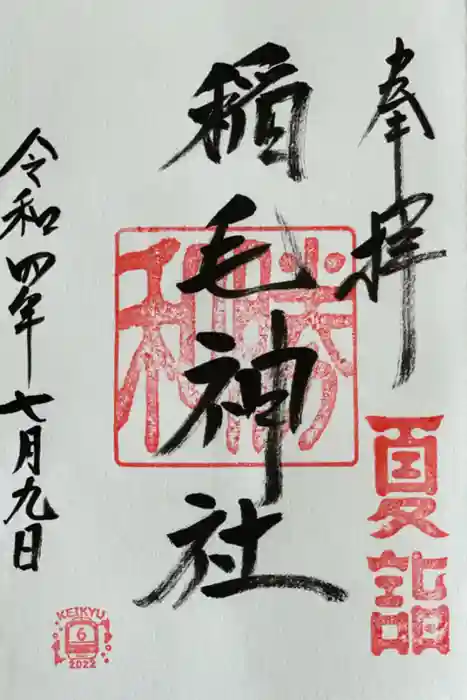 奉拝
夏詣
稲毛神社
令和四年七月九日
KEIKYU
6
2022